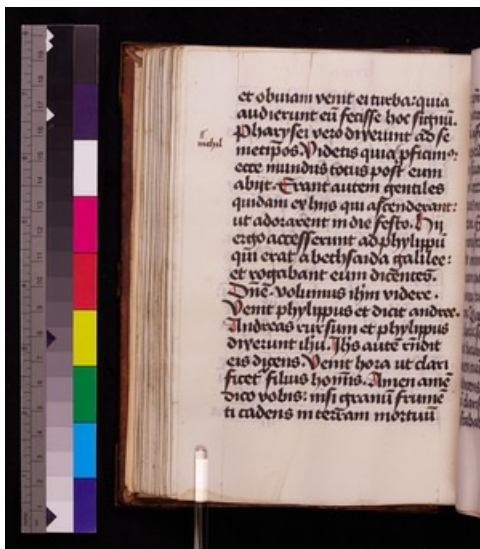 et obuiam venit ei turba: quia
audierunt eū fecisse hoc signū.
Pharysei vero dixerunt ad se
metip̄os. Videtis quia p̄ficim9:
ecce mundus totus post eum
abijt. Erant autem gentiles
quidam ex hijs qui ascenderant:
ut adorarent in die festo. Hij
ergo accesserunt ad phylippū
qui erat a bethsaida galilee:
et rogabant eum dicentes.
Dn̄e. volumus ihm̄ videre.
Venit phylippus et dicit andree.
Andreas rursum et phylippus
dixerunt ihū. Ihs autē rn̄dit
eis dicens. Venit hora ut clari
ficet filius hom̄is. Amen amē
dico vobis: nisi granū frumē
ti cadens in terram mortuū